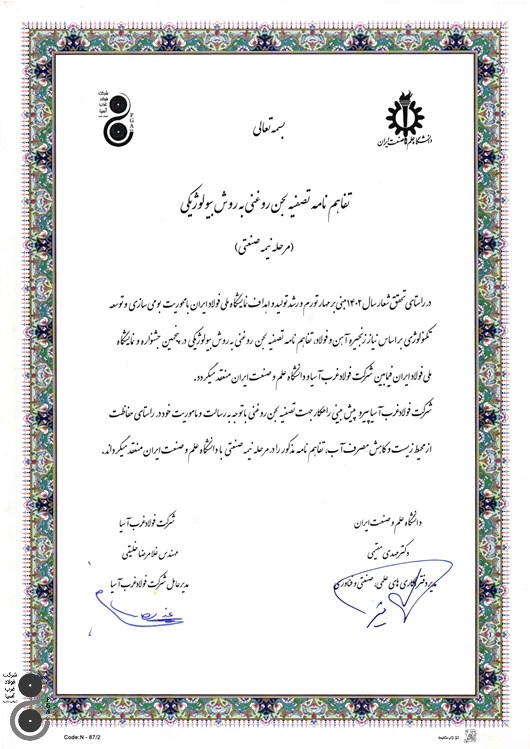 شرکت
فولاد
غرب
آسیا
FGA
دانشگاه علم و صنعت ایران
بسمه تعالی
تفاهم نامه تصفیه لجن روغنی به روش بیولوژیکی
(مرحله نیمه صنعتی)
در راستای تحقق شعار سال ۱۴۰۲ مبنی بر مهار تورم و رشد تولید و اهداف نمایشگاه ملی فولاد ایران با محوریت بومی سازی و توسعه
تکنولوژی بر اساس نیاز زنجیره آهن و فولاد، تفاهم نامه تصفیه لجن روغنی به روش بیولوژیکی در پنجمین جشنواره و نمایشگاه
ملی فولاد ایران فیمابین شرکت فولاد غرب آسیا و دانشگاه علم و صنعت ایران منعقد میگردد.
شرکت فولاد غرب آسیا پیرو پیش بینی راهکار جهت تصفیه لجن روغنی با توجه به رسالت و ماموریت خود در راستای حفاظت
از محیط زیست و کاهش مصرف آب، تفاهم نامه مذکور را در مرحله نیمه صنعتی با دانشگاه علم و صنعت ایران منعقد میگرداند.
دانشگاه علم و صنعت ایران
دکتر مهدی مقیمی
مدیر دفتر همکاری های علمی، صنعتی و فناوری
شرکت فولاد غرب آسیا
مهندس غلامرضا خلیقی
مدیرعامل شرکت فولاد غرب آسیا
شرکت
فولاد
غرب
آسیا
Code:N - 87/2